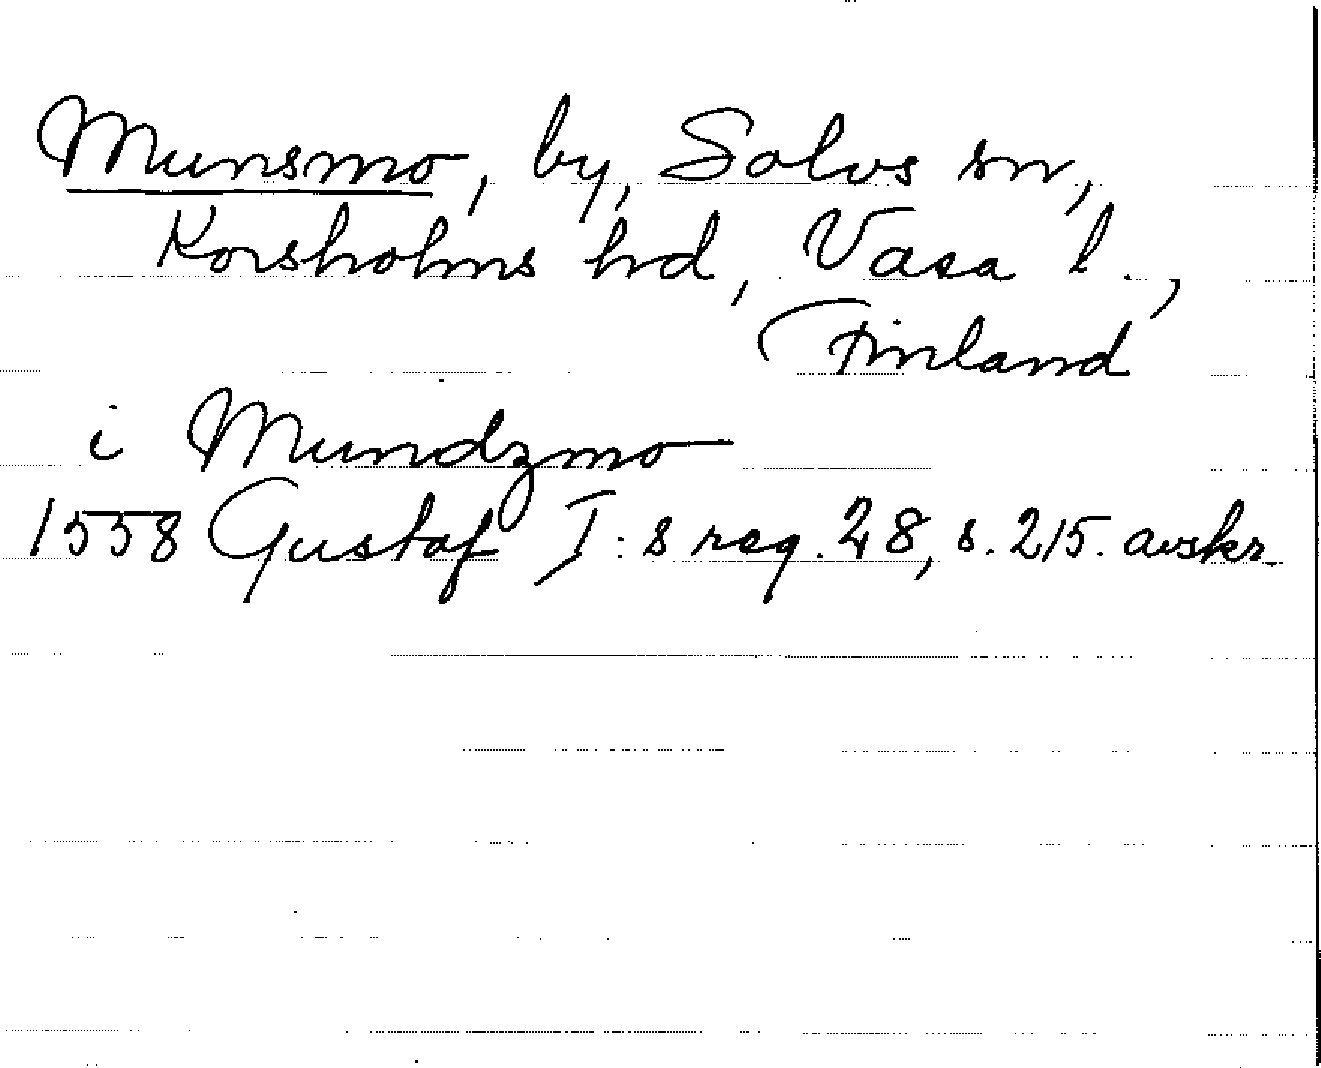 Munsmo, by, Solvs sn,
Korsholms hd, Vasa l.,
Finland
i Mundzmo
1558 Gustaf I:s reg. 28, s. 215. avskr.